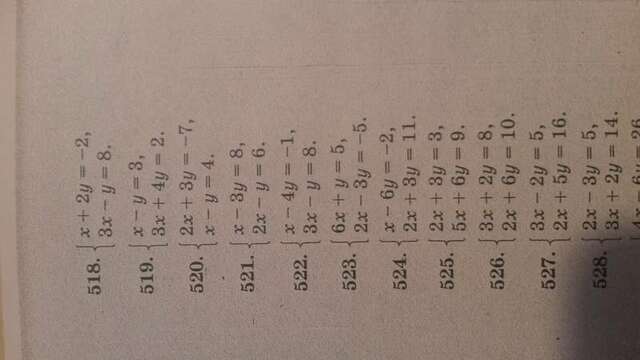 518. { x + 2y = −2,
3x − y = 8.
519. { x − y = 3,
3x + 4y = 2.
520. { 2x + 3y = −7,
x − y = 4.
521. { x − 3y = 8,
2x − y = 6.
522. { x − 4y = −1,
3x − y = 8.
523. { 6x + y = 5,
2x − 3y = −5.
524. { x − 6y = −2,
2x + 3y = 11.
525. { 2x + 3y = 3,
5x + 6y = 9.
526. { 3x + 2y = 8,
2x + 6y = 10.
527. { 3x − 2y = 5,
2x + 5y = 16.
528. { 2x − 3y = 5,
3x + 2y = 14.